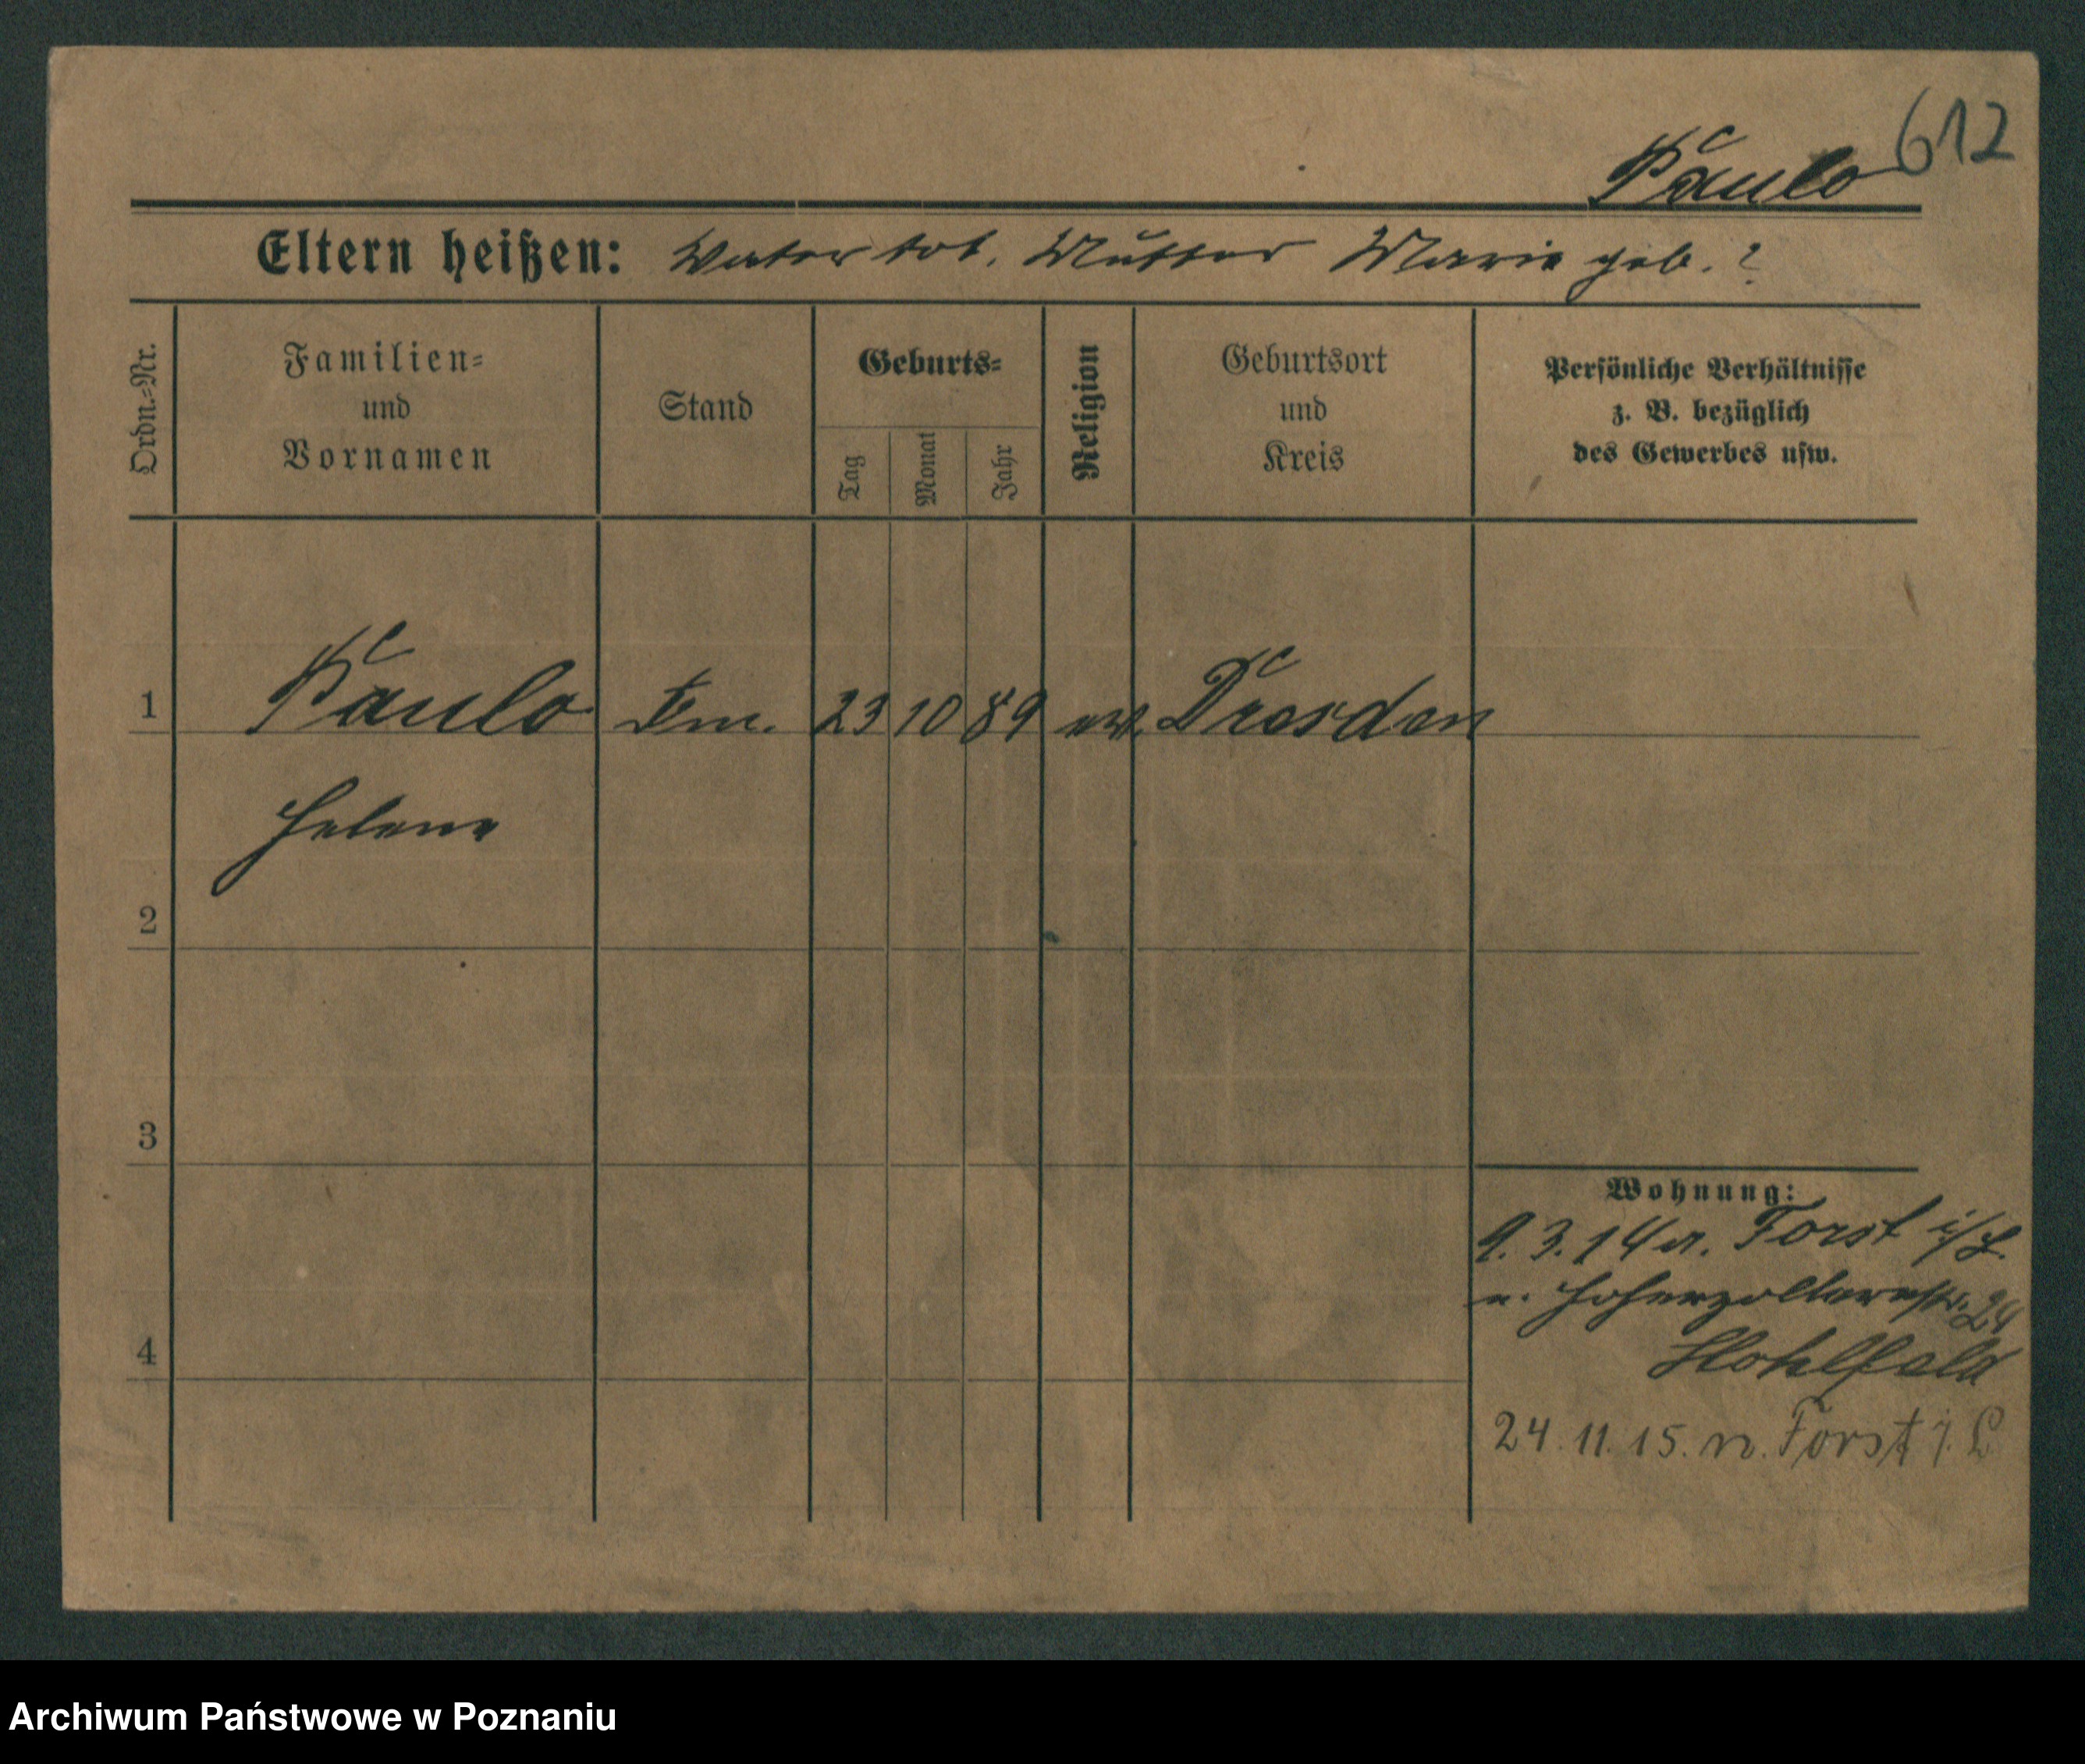 612
Paulo
Eltern heißen: Vater tot. Mutter Marie geb. ?
Ordn.=Nr.
Familien=
und
Vornamen
Stand
Geburts=
Tag
Monat
Jahr
Religion
Geburtsort
und
Kreis
Persönliche Verhältnisse
z. B. bezüglich
des Gewerbes usw.
1 Paulo 23 10 89 ev. Dresden
Helene
2
3
4
Wohnung:
9. 3. 14 a. Forst i/L.
n. Hohenzollernstr. 24
24. 11. 15. n. Forst i. L
Archiwum Państwowe w Poznaniu